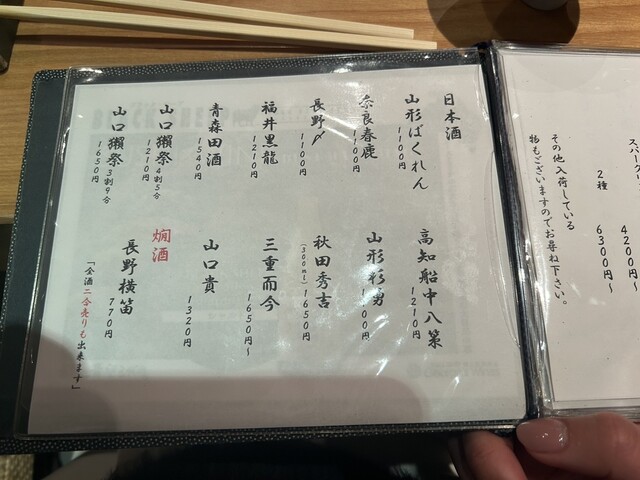 日本酒
山形ばくれん
1100円
奈良春鹿
1100円
長野〆
1100円
福井黒龍
1210円
青森田酒
1540円
山口獺祭 4割5分
1210円
山口獺祭 3割9分
1650円
高知船中八策
1210円
山形彫男
秋田秀吉
(300ml) 1650円
三重而今
1650円~
山口貴
1320円
燗酒
長野横笛
770円
「全酒二合売りも出来ます」
4200円~
2種
6300円~
その他入荷している
物もございますのでお尋ね下さい。